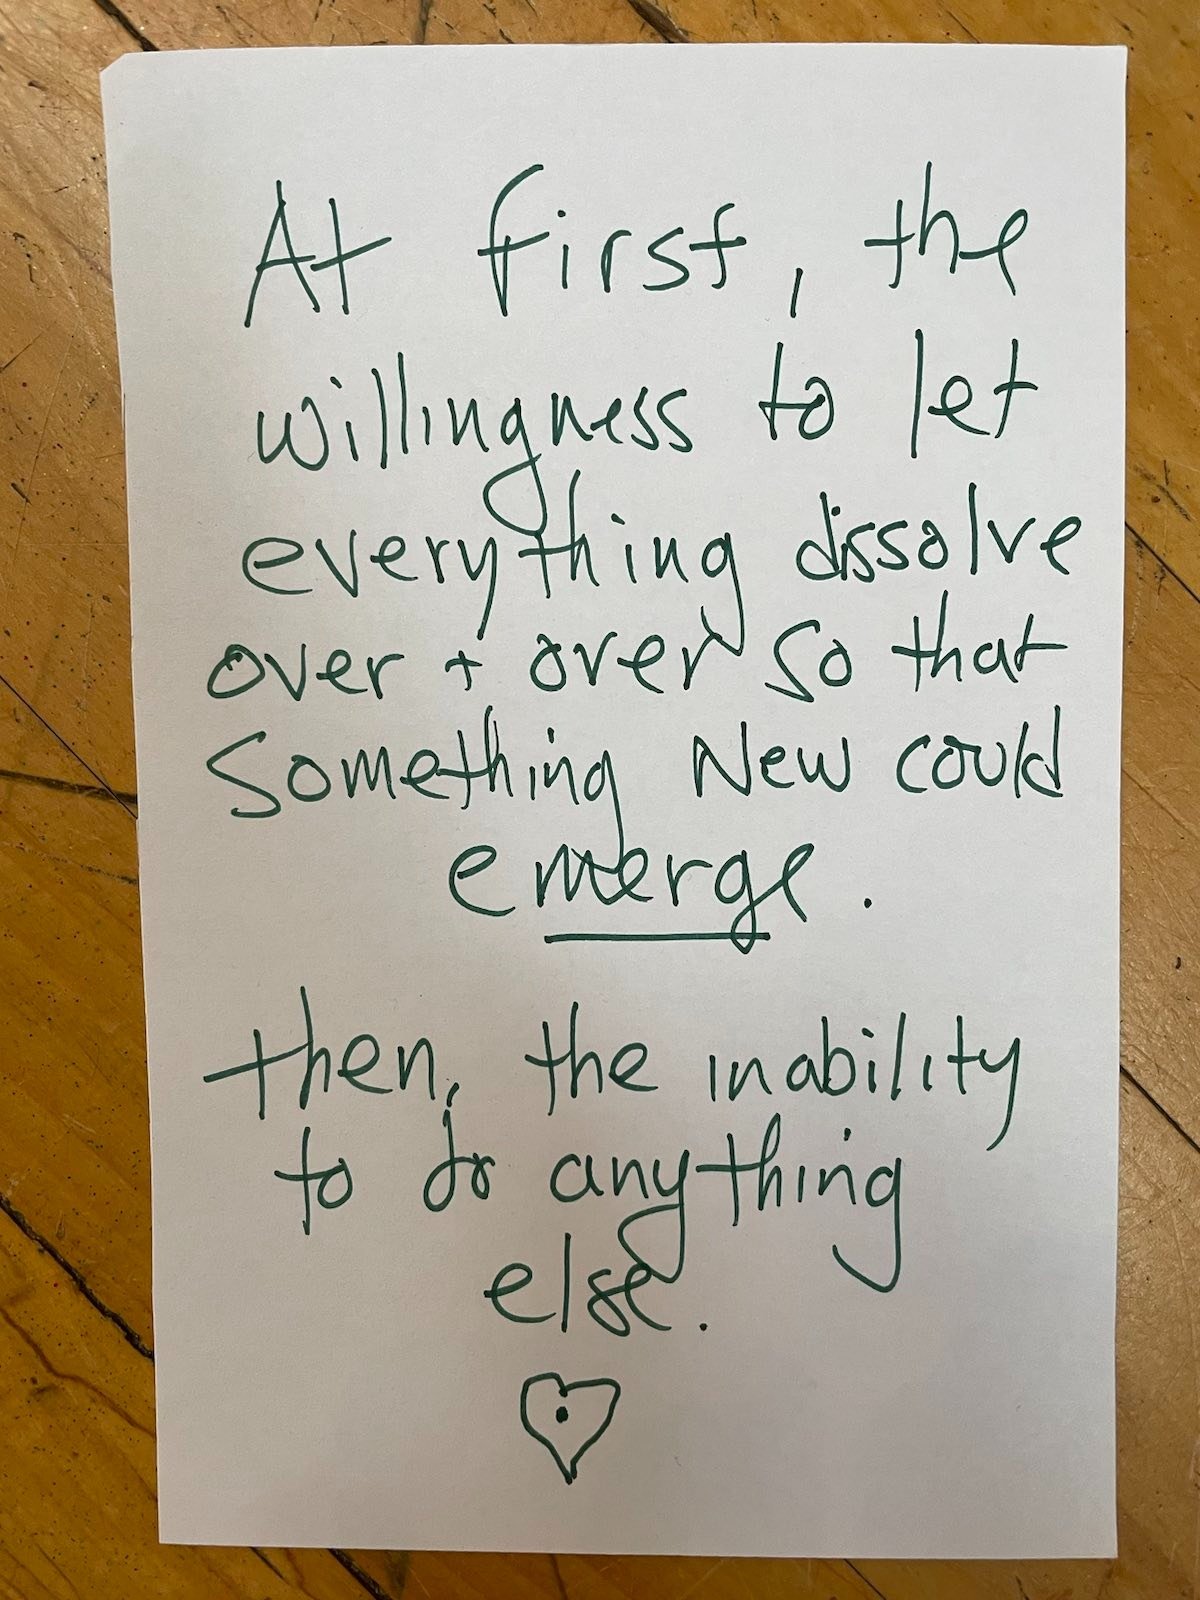 At first, the
willingness to let
everything dissolve
over + over so that
Something New could
emerge.
then, the inability
to do anything
else.